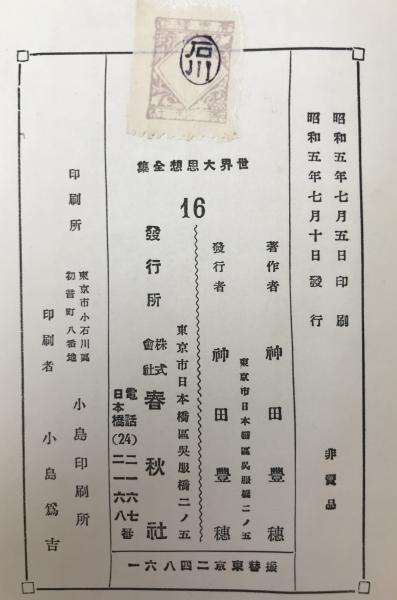 石川
昭和五年七月五日印刷
昭和五年七月十日發行
非賣品
世界大思想全集
16
著作者 神田豐穗
東京市日本橋區吳服橋二ノ五
發行者 神田豐穗
東京市日本橋區吳服橋二ノ五
發行所 株式會社 春秋社
電話日本橋(24)二一六七番
二一六八番
印刷所 東京市小石川區初音町八番地 小島印刷所
印刷者 小島爲吉
振替東京二四八六一